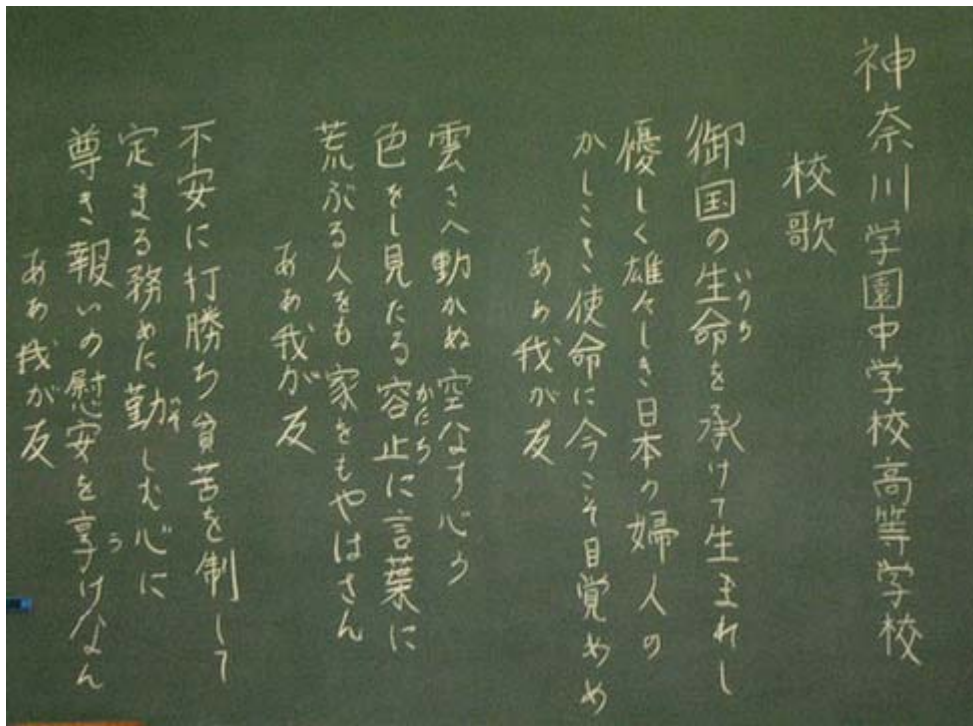 神奈川学園中学校高等学校
校歌
御国の生命を承けて生まれし
いのち
優しく雄々しき日本の婦人の
かしこき使命に今こそ目覚めめ
ああ我が友
雲さへ動かぬ空なす心の
色をし見たる容止に言葉に
かたち
荒ぶる人をも家をもやはさん
ああ我が友
不安に打勝ち貧苦を制して
定まる務めに勤しむ心に
尊き報いの慰安を享けなん
う
ああ我が友